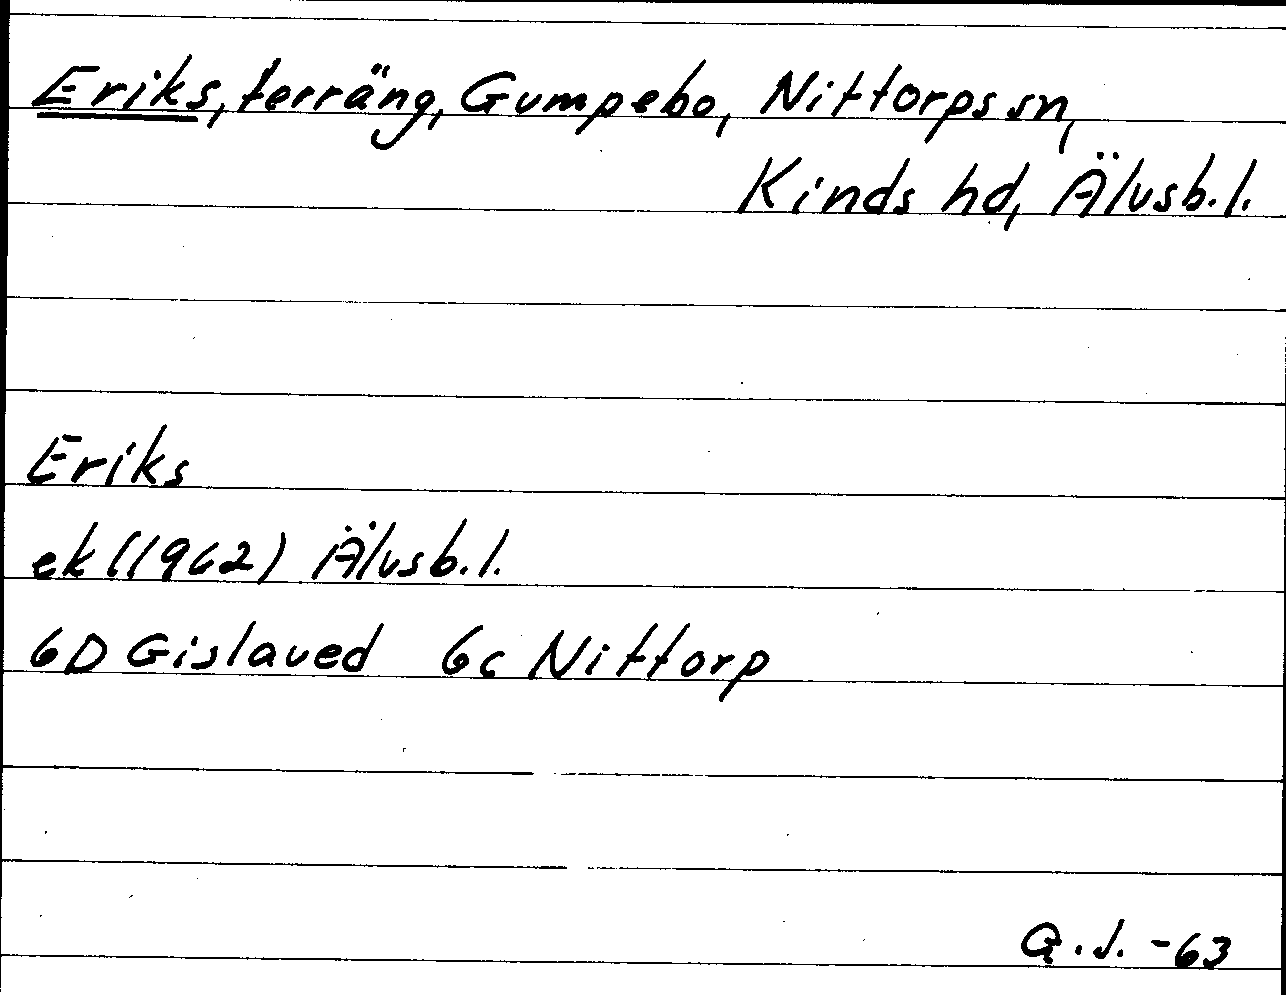 Eriks, terräng, Gumpebo, Nittorps sn,
Kinds hd, Älvsb. l.
Eriks
ek (1962) Älvsb. l.
6D Gislaved 6c Nittorp
G. J. -63